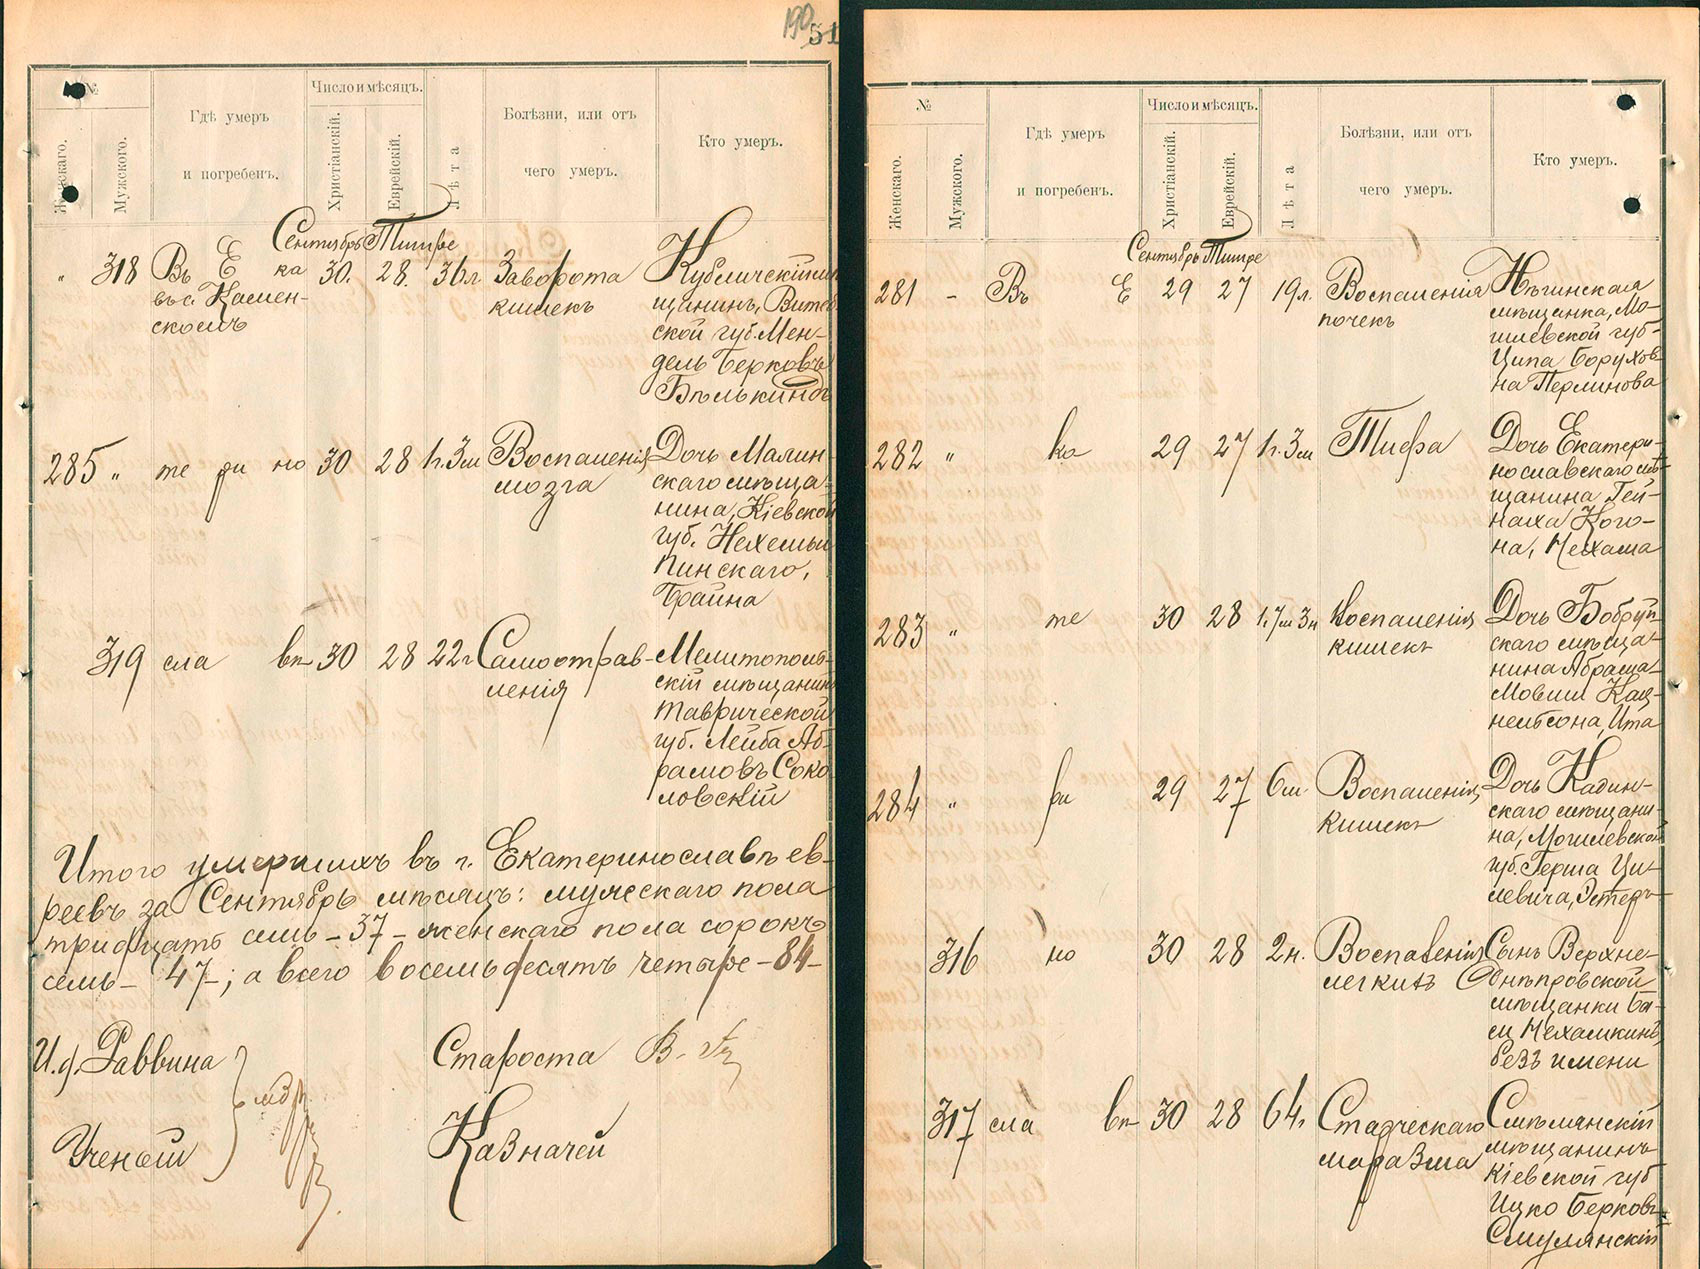 190
51
№
Женскаго.
Мужского.
Гдѣ умеръ
и погребенъ.
Число и мѣсяцъ.
Христіанскій.
Еврейскій.
Лѣта
Болѣзни, или отъ
чего умеръ.
Кто умеръ.
Сентябрь Тишре
„ 318 Въ Е ка 30. 28. 36 л Заворота
въ с. Камен-
скомъ
кишекъ
Кубличскій мѣ
щанинъ, Витеб
ской губ. Мен-
дель Берковъ
Бѣлькиндъ
285 „ те ри но 30 28 1 г. 3 м Воспаленія
мозга
Дочь Малин-
скаго мѣща-
нина, Кіевской
губ. Нехемьи
Пинскаго,
Брайна
319 сла вѣ 30 28 22 г Самоотрав-
ленія
Мелитополь-
скій мѣщанинъ
Таврической
губ. Лейба Аб-
рамовъ Соко
ловскій
Итого умершихъ въ г. Екатеринославѣ ев-
реевъ за Сентябрь мѣсяцъ: мужескаго пола
тридцать семь – 37 – женскаго пола сорокъ
семь – 47 –; а всего восемьдесятъ четыре – 84 –
И. д. Раввина
Староста В.
Ученый
Казначей
№
Женскаго.
Мужского.
Гдѣ умеръ
и погребенъ.
Число и мѣсяцъ.
Христіанскій.
Еврейскій.
Лѣта
Болѣзни, или отъ
чего умеръ.
Кто умеръ.
Сентябрь Тишре
281 – Въ Е 29 27 19 л. Воспаленія
почекъ
Нѣжинская
мѣщанка, Мо-
гилевской губ-
Ципа Борухов
на Перлинова
282 „ ка 29 27 1 г. 3 м Тифа
Дочь Екатери-
нославскаго мѣ-
щанина Гей-
наха Кого-
на, Нехама
283 „ те 30 28 1. 7 м 3 н Воспаленія
кишекъ
Дочь Бобруй
скаго мѣща-
нина Абрама-
Мовши Кац-
нельсона, Ита
284 „ ри 29 27 6 м Воспаленія
кишекъ
Дочь Кадин-
скаго мѣщани-
на, Могилевской
губ. Герша Ци-
левича, Эстеръ
316 но 30 28 2 н. Воспаленія
легкихъ
Сынъ Верхне-
днѣпровской
мѣщанки Ба-
си Нехамкинъ,
безъ имени
317 сла вѣ 30 28 64 г Старческаго
маразма
Смѣлянскій
мѣщанинъ
Кіевской губ
Ицко Берковъ
Смулянскій